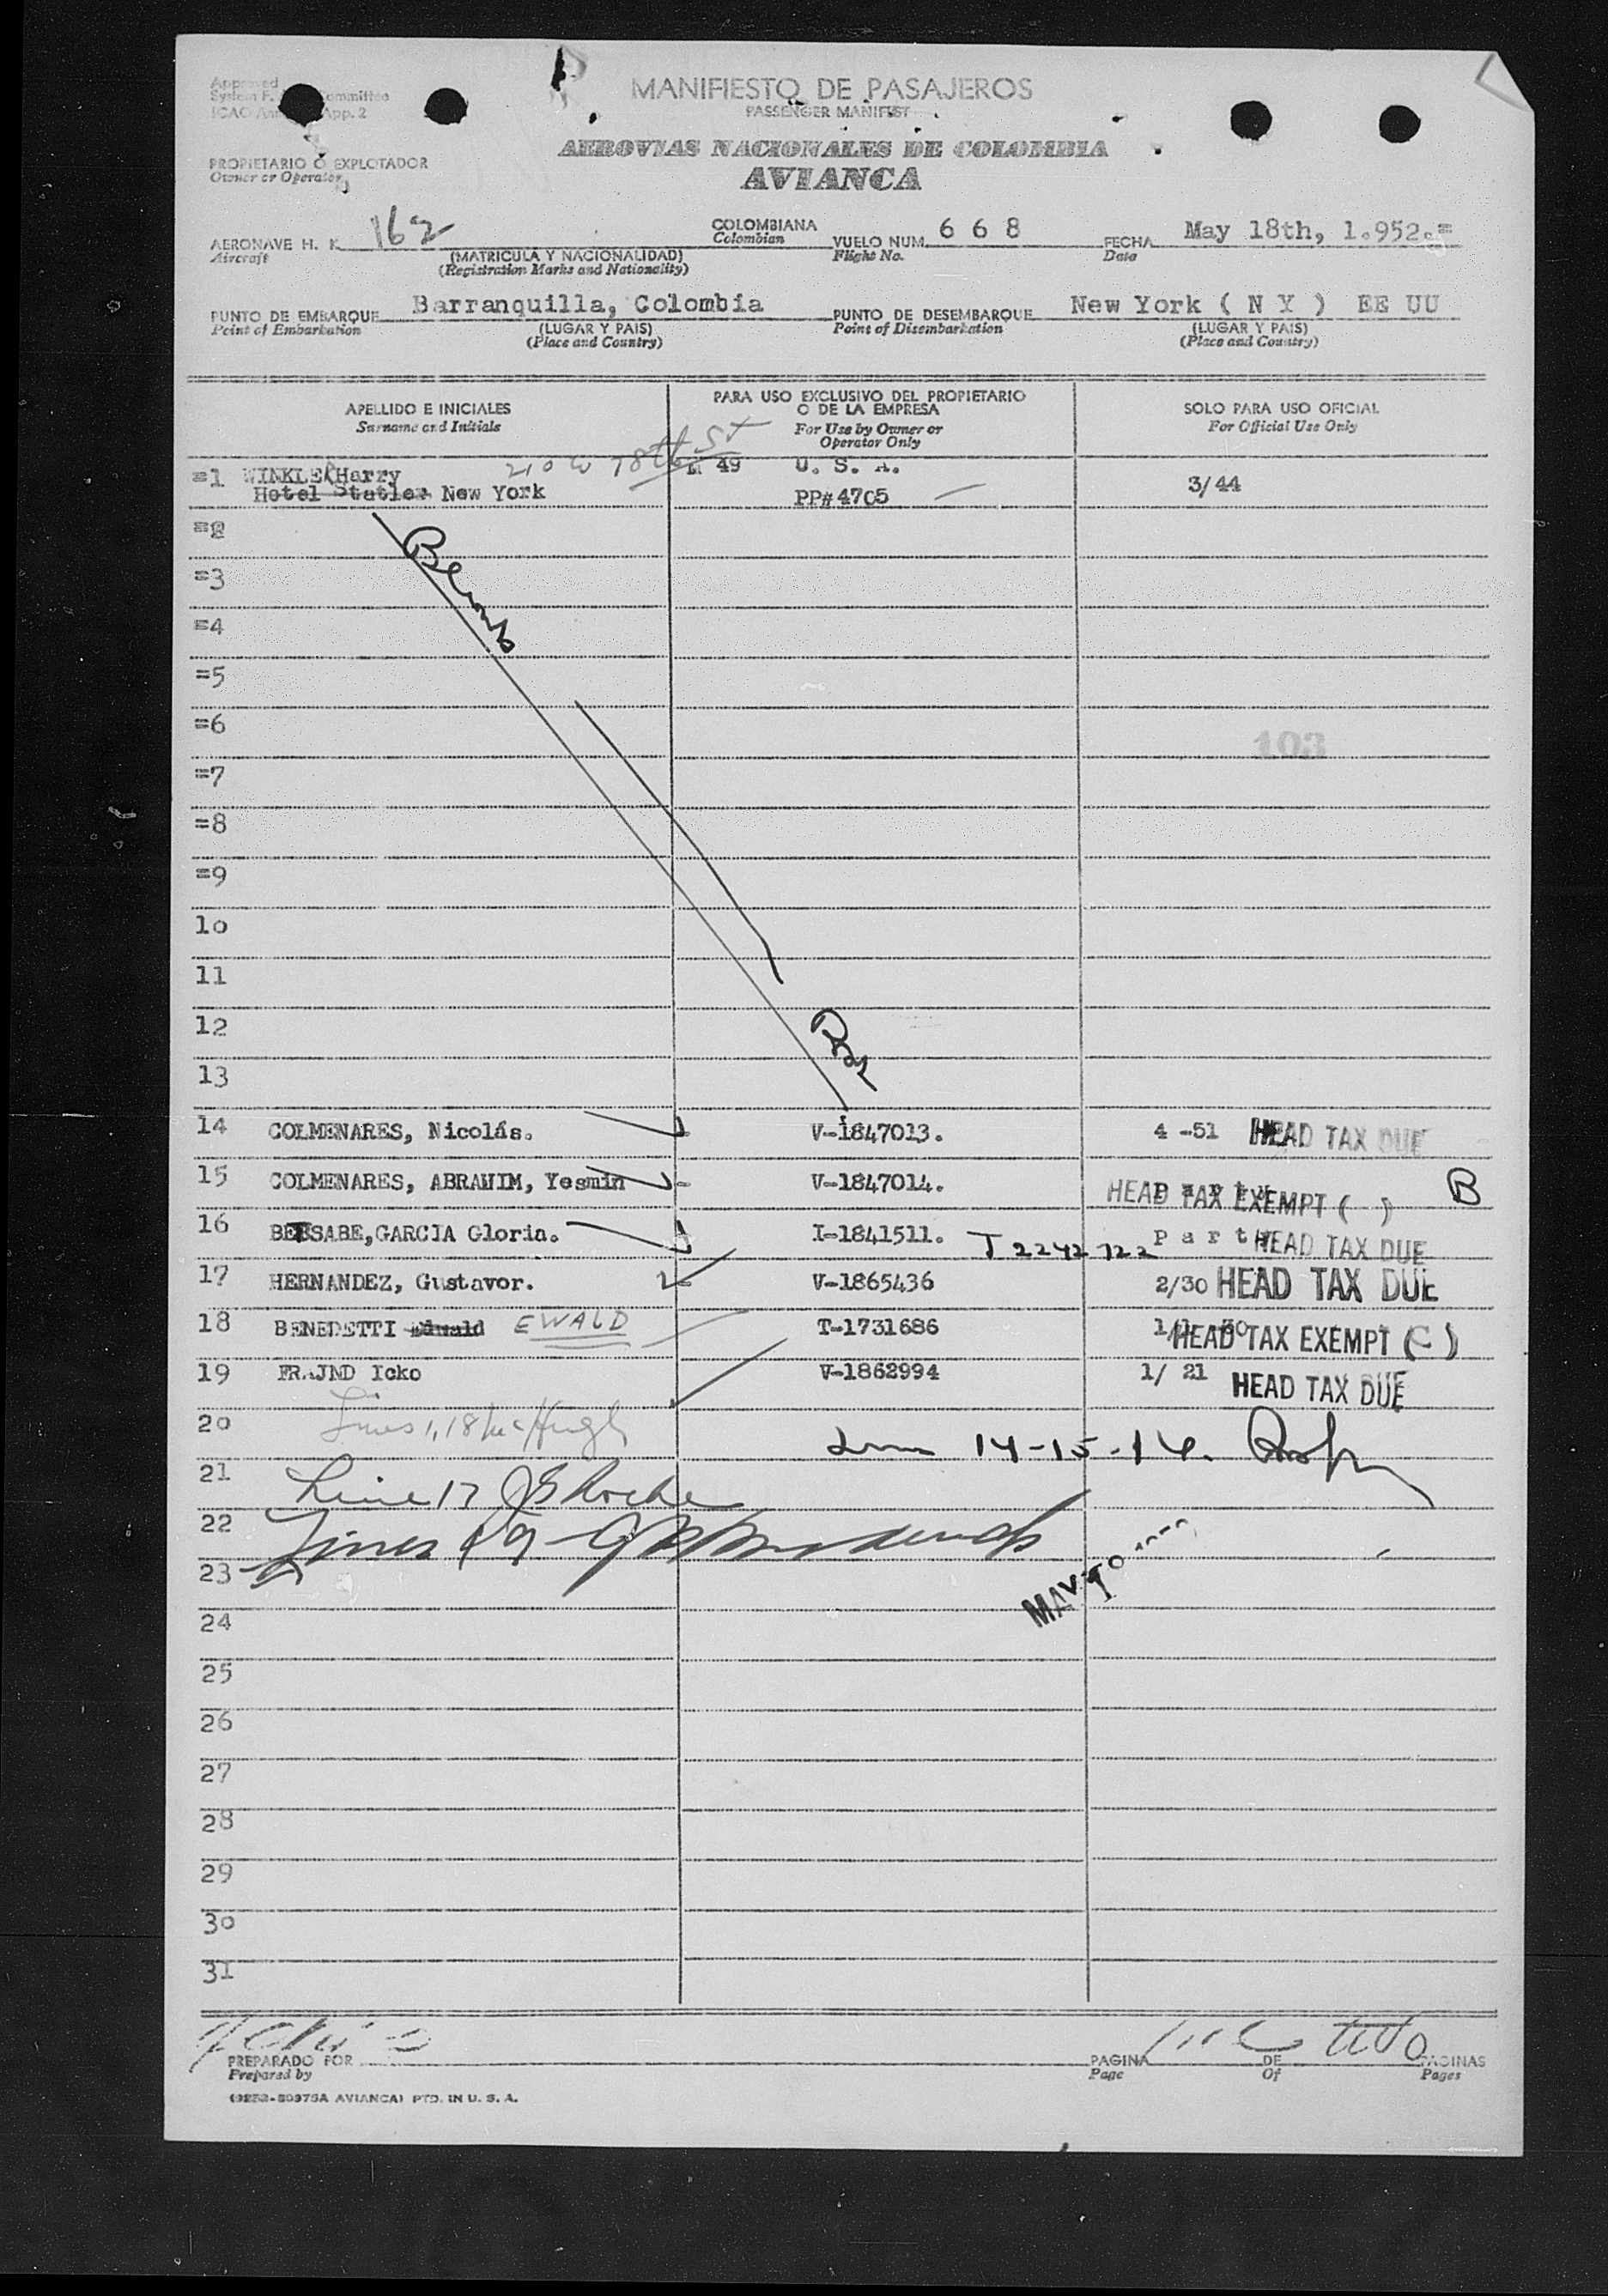 Approved
System F. Committee
ICAO App. 2
MANIFIESTO DE PASAJEROS
PASSENGER MANIFEST
AEROVIAS NACIONALES DE COLOMBIA
AVIANCA
PROPIETARIO O EXPLOTADOR
Owner or Operator
AERONAVE H. K. 162
Aircraft
(MATRICULA Y NACIONALIDAD)
(Registration Marks and Nationality)
COLOMBIANA
Colombian
VUELO NUM. 6 6 8
Flight No.
FECHA May 18th, 1.952.=
Date
PUNTO DE EMBARQUE Barranquilla, Colombia
Point of Embarkation
(LUGAR Y PAIS)
(Place and Country)
PUNTO DE DESEMBARQUE New York ( N Y ) EE UU
Point of Disembarkation
(LUGAR Y PAIS)
(Place and Country)
APELLIDO E INICIALES
Surname and Initials
PARA USO EXCLUSIVO DEL PROPIETARIO
O DE LA EMPRESA
For Use by Owner or
Operator Only
SOLO PARA USO OFICIAL
For Official Use Only
210 W 78th St
=1 WINKLER Harry 49 U. S. A.
Hotel Statler New York PP# 4705 3/44
=2
=3
=4
=5
=6
103
=7
=8
=9
10
11
12
13
14 COLMENARES, Nicolás. V-1847013. 4 -51 HEAD TAX DUE
15 COLMENARES, ABRAHIM, Yesmin V-1847014. HEAD TAX EXEMPT ( ) B
16 BETSABE, GARCIA Gloria. I-1841511. T 2242722 Party HEAD TAX DUE
17 HERNANDEZ, Gustavor. V-1865436 2/30 HEAD TAX DUE
18 BENEDETTI EWALD T-1731686 HEAD TAX EXEMPT (C)
19 FRAJND Icko V-1862994 1/ 21 HEAD TAX DUE
20 Lines 1, 18 McHugh
14-15-16.
21 Line 17
22 Lines
23
24
25
26
27
28
29
30
31
PREPARADO POR
Prepared by
PAGINA DE two PAGINAS
Page Of Pages
AVIANCA) PTD. IN U. S. A.